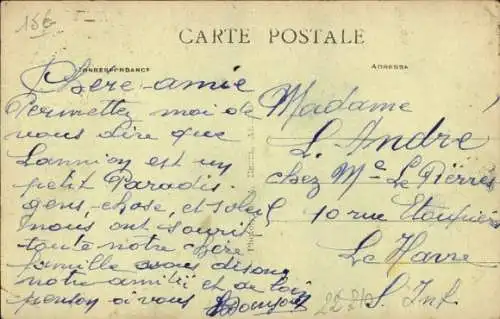 15€
CARTE POSTALE
CORRESPONDANCE
ADRESSE
Chère amie
Permettez moi de
vous dire que
Lannion est un
petit Paradis.
gens, chose, et soleil
nous ont souri
toute notre chère
famille vous disons
notre amitié et de loin
pensons à vous
Madame
L. André
chez Me Le Pierrès
10 rue
Le Havre
S. Inf